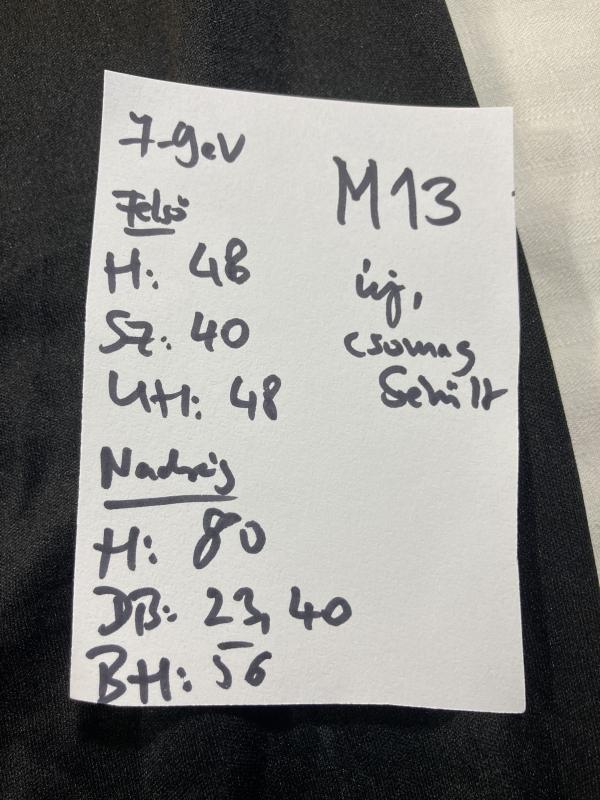 7-9 eV
M13
Felső
H: 48
új,
SZ: 40
csomag
UH: 48
sérült
Nadrág
H: 80
DB: 23, 40
BH: 56